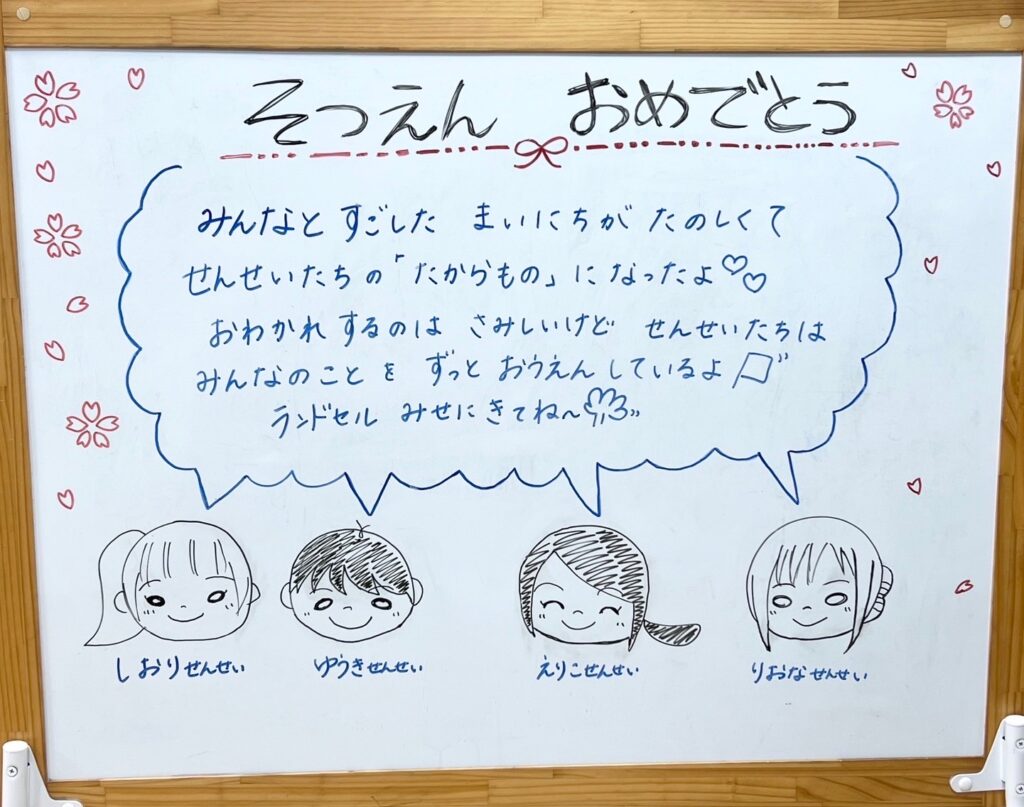 そつえん おめでとう
みんなと すごした まいにちが たのしくて
せんせいたちの「たからもの」に なったよ♡♡
おわかれ するのは さみしいけど せんせいたちは
みんなのこと を ずっと おうえん しているよ
ランドセル みせに きてね〜
しおりせんせい ゆうきせんせい えりこせんせい りおなせんせい